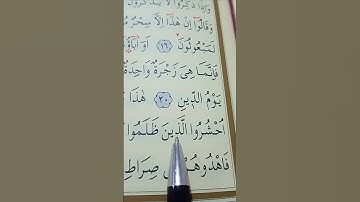 وَاِذَا ذُكِّرُوا لَا يَذْكُرُونَ
وَقَالُٓوا اِنْ هٰذَٓا اِلَّا سِحْرٌ
لَمَبْعُوثُونَ ﴿١٦﴾ اَوَ اٰبَٓاؤُ
فَاِنَّمَا هِىَ زَجْرَةٌ وَاحِدَةٌ
يَوْمُ الدّ۪ينِ ﴿٢٠﴾ هٰذَا
اُحْشُرُوا الَّذ۪ينَ ظَلَمُوا
فَاهْدُوهُمْ صِرَاطِ